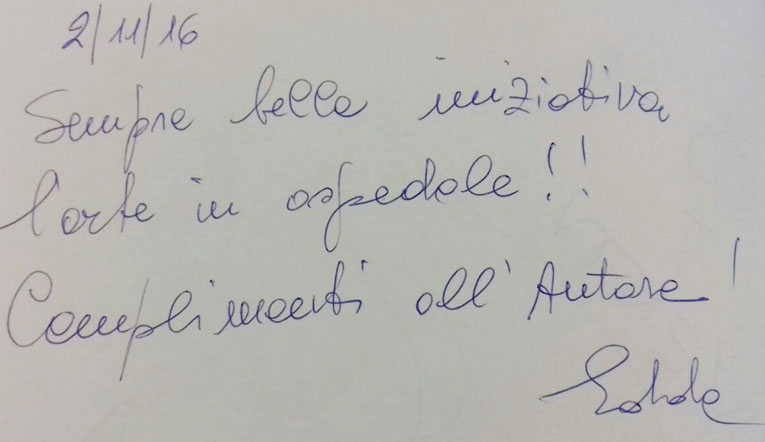 2/11/16
Sempre bella iniziativa
l'arte in ospedale!!
Complimenti all'Autore!